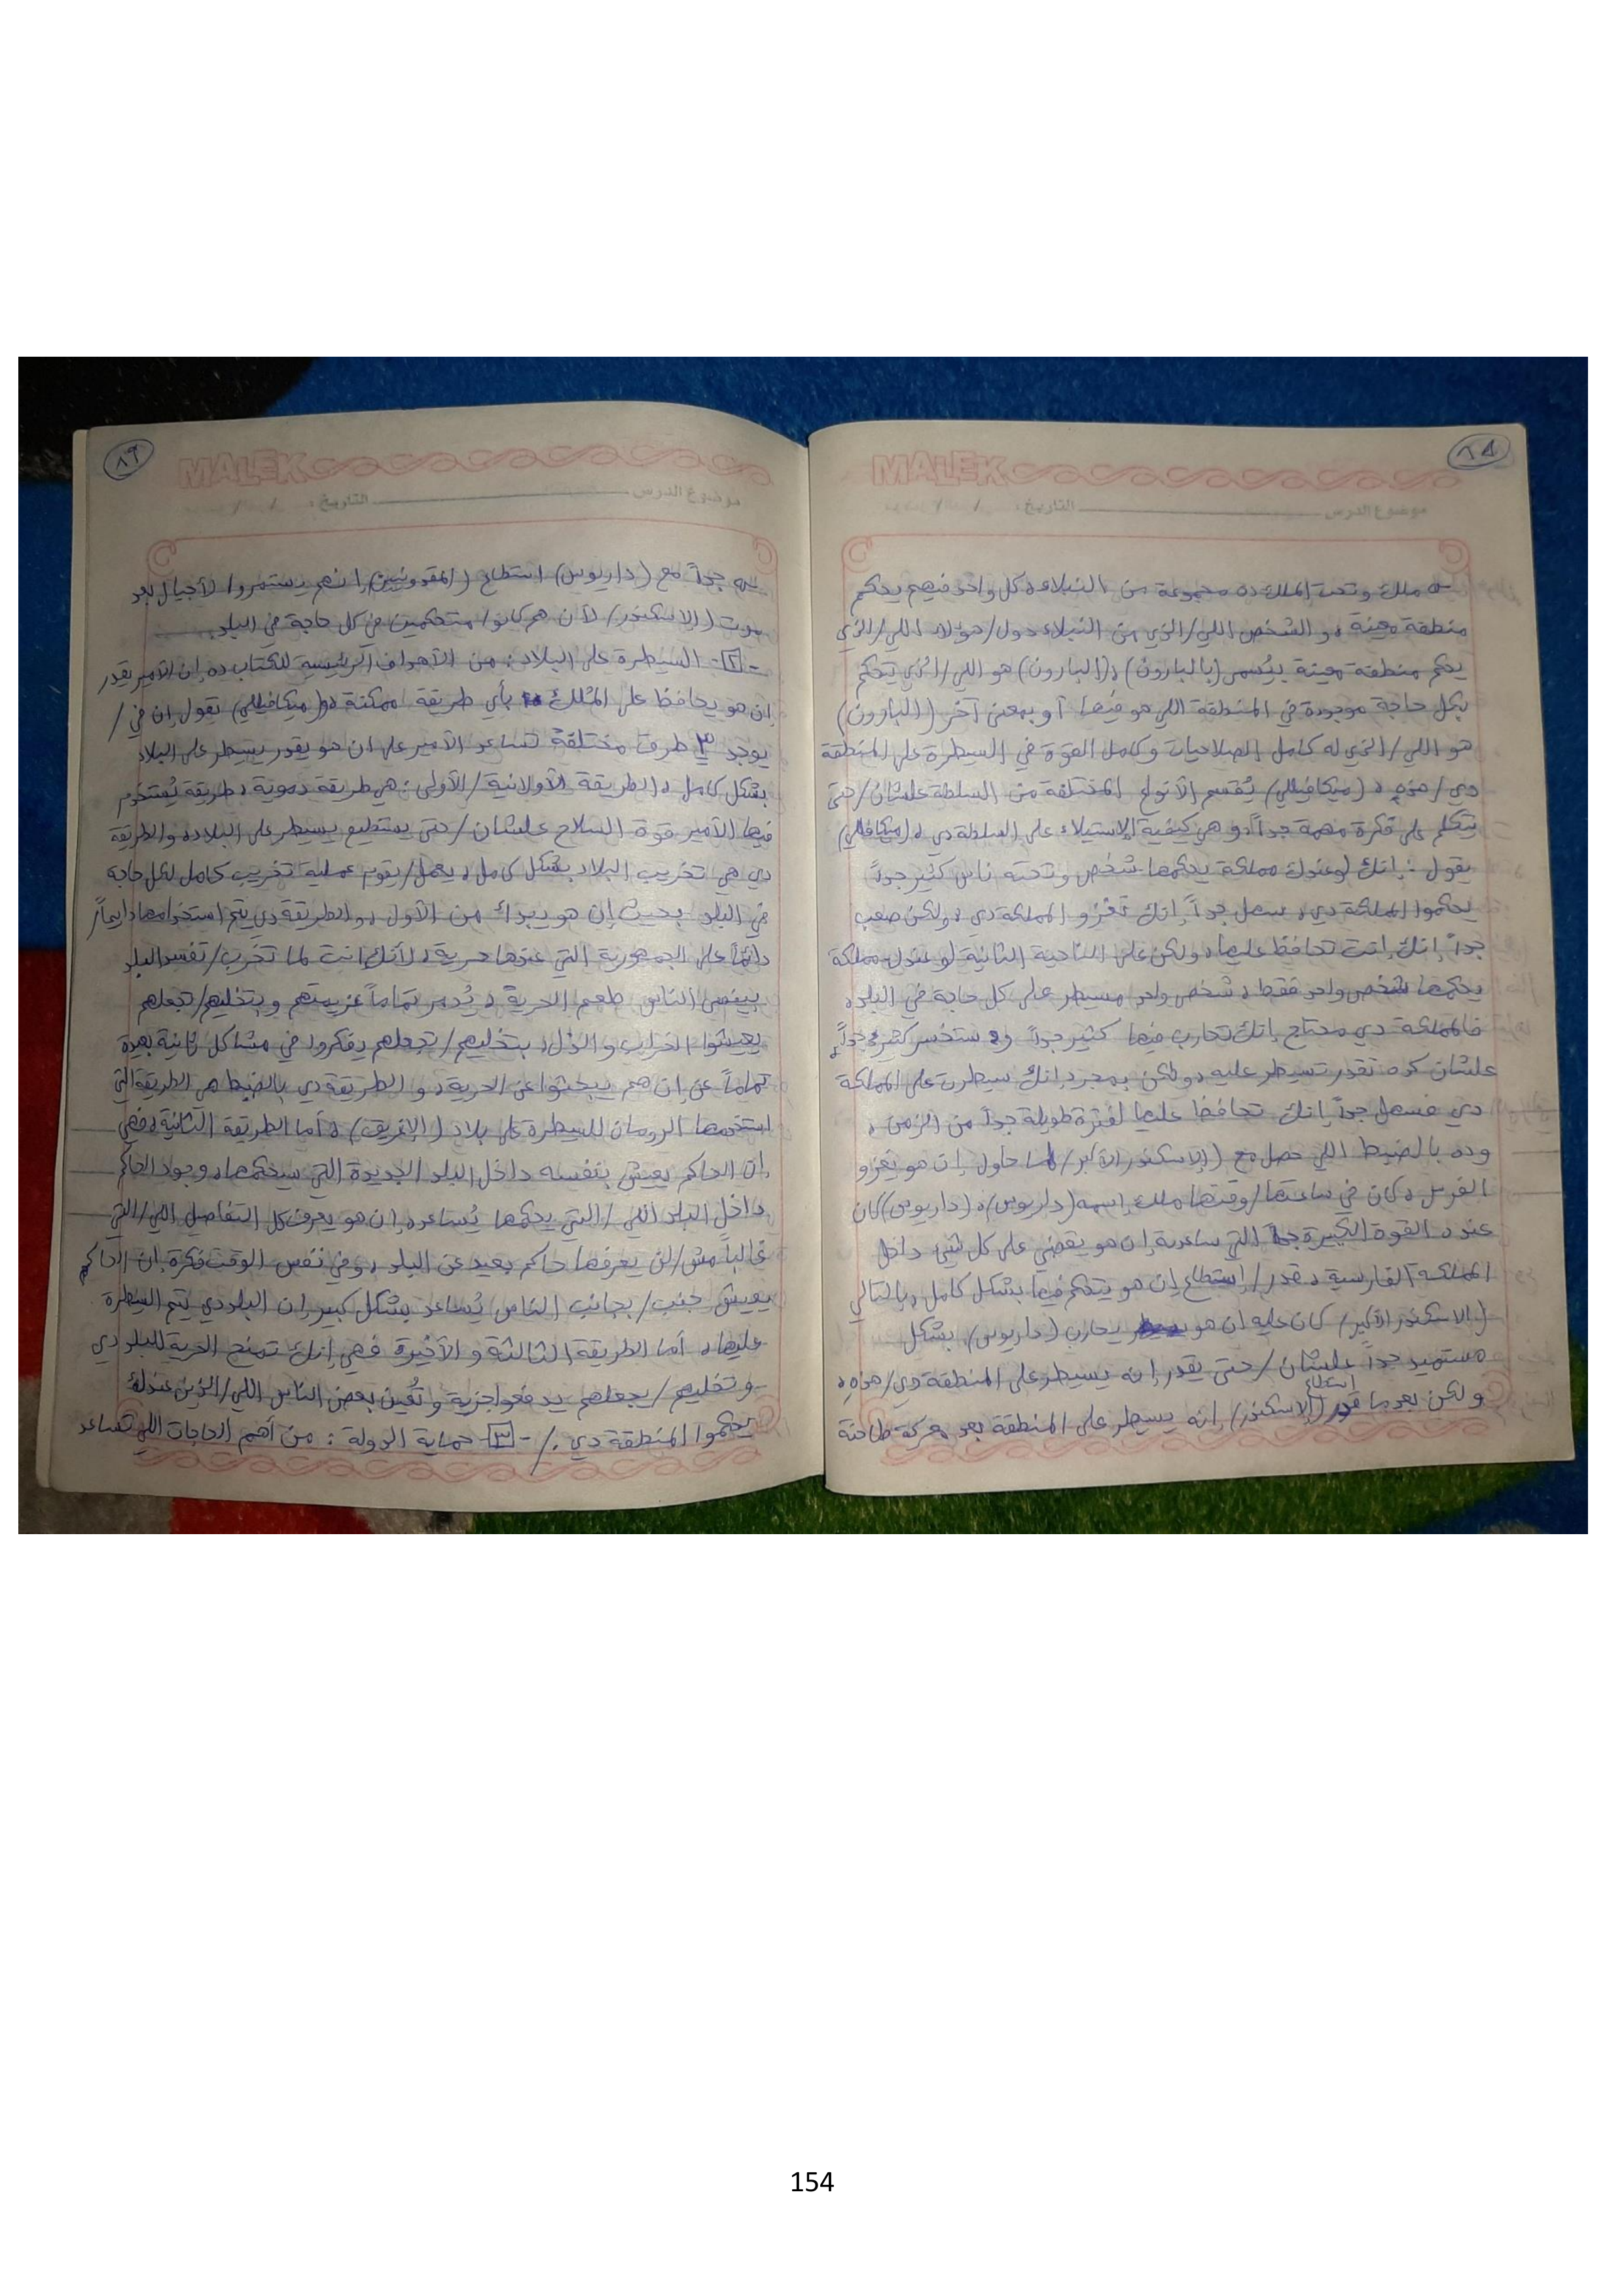 ٨٨
MALEK
موضوع الدرس التاريخ: / /
ملك وتحت الملك ده مجموعة من النبلاء، كل واحد فيهم يحكم
منطقة معينة، والشخص اللي/الذي من النبلاء دول/هؤلاء اللي/الذي
يحكم منطقة معينة يُسمى (بالبارون)، (البارون) هو اللي/الذي يتحكم
بكل حاجة موجودة في المنطقة اللي هو فيها أو بمعنى آخر (البارون)
هو اللي/الذي له كامل الصلاحيات وكامل القوة في السيطرة على المنطقة
دي/هذه، (ميكافيللي) يُقسم الأنواع المختلفة من السلطة علشان/حتى
يتكلم على فكرة مهمة جداً، وهي كيفية الإستيلاء على السلطة دي، (ميكافيللي)
يقول: إنك لو عندك مملكة يحكمها شخص وتحته ناس كثير جداً
يحكموا المملكة دي، سهل جداً إنك تغزو المملكة دي، ولكن صعب
جداً إنك إنت تحافظ عليها، ولكن على الناحية الثانية لو عندك مملكة
يحكمها شخص واحد فقط، شخص واحد مسيطر على كل حاجة في البلد،
فالمملكة دي محتاج إنك تحارب فيها كثير جداً وستخسر كثير جداً
علشان كده تقدر تسيطر عليه، ولكن بمجرد إنك سيطرت على المملكة
دي فسهل جداً إنك تحافظ عليها لفترة طويلة جداً من الزمن،
وده بالضبط اللي حصل مع (الإسكندر الأكبر/لما حاول إن هو يغزو
الفرس، كان في ساعتها/وقتها ملك إسمه (داريوس)، (داريوس) كان
عنده القوة الكبيرة التي ساعدته إن هو يقضي على كل شئ داخل
المملكة الفارسية، قدر/إستطاع إن هو يتحكم فيها بشكل كامل، بالتالي
(الاسكندر الأكبر/ كان عليه إن هو يحارب (داريوس) بشكل
مستميد جداً علشان/حتى يقدر إنه يسيطر على المنطقة دي/هذه،
استطاع
ولكن بعد ما قدر (الإسكندر) إنه يسيطر على المنطقة بعد معركة طاحنة
٨٩
MALEK
موضوع الدرس التاريخ: / /
جداً مع (داريوس) استطاع (المقدونيين) إنهم يستمروا لأجيال بعد
موت (الاسكندر/ لأن هم كانوا متحكمين في كل حاجة في البلد.
-٢- السيطرة على البلاد: من الأهداف الرئيسية للكتاب ده إن الأمير يقدر
إن هو يحافظ على المُلك بأي طريقة ممكنة، (ميكافيللي) يقول إن في/
يوجد ٣ طرق مختلفة تساعد الأمير على ان هو يقدر يسيطر على البلاد
بشكل كامل، الطريقة الأولانية/الأولى: هي طريقة دموية، طريقة يُستخدم
فيها الأمير قوة السلاح علشان/حتى يستطيع يسيطر على البلاد، والطريقة
دي هي تخريب البلاد بشكل كامل، يعمل/يقوم عملية تخريب كامل لكل حاجة
في البلد بحيث إن هو يبدأ من الأول، والطريقة دي يتم استخدامها دايماً/
دائماً على الجمهورية التي عندها حرية، لأنك انت لما تخرب/تفسد البلد
بينسى الناس طعم الحرية، يُدمر تماماً عزيمتهم وبتخليهم/تجعلهم
يعيشوا الخراب والذل، بتخليهم/تجعلهم يفكروا في مشاكل ثانية بعيدة
تماماً عن إن هم يبحثوا عن الحرية، والطريقة دي بالضبط هي الطريقة التي
استخدمها الرومان للسيطرة على بلاد (الإغريق)، أما الطريقة الثانية، فهي
إن الحاكم يعيش بنفسه داخل البلد الجديدة التي سيحكمها، وجود الحاكم
داخل البلد اللي/التي يحكمها يُساعده إن هو يعرف كل التفاصيل اللي/التي
غالباً مش/لن يعرفها حاكم بعيد عن البلد، وفي نفس الوقت فكرة إن الحاكم
يعيش جنب/بجانب الناس يُساعد بشكل كبير إن البلد دي يتم السيطرة
عليها، أما الطريقة الثالثة والأخيرة فهي إنك تمنح الحرية للبلد دي
وتخليهم/يجعلهم يدفعوا جزية وتُعين بعض الناس اللي/الذين عندك
يحكموا المنطقة دي./ -٣- حماية الدولة: من أهم الحاجات اللي تساعد
154